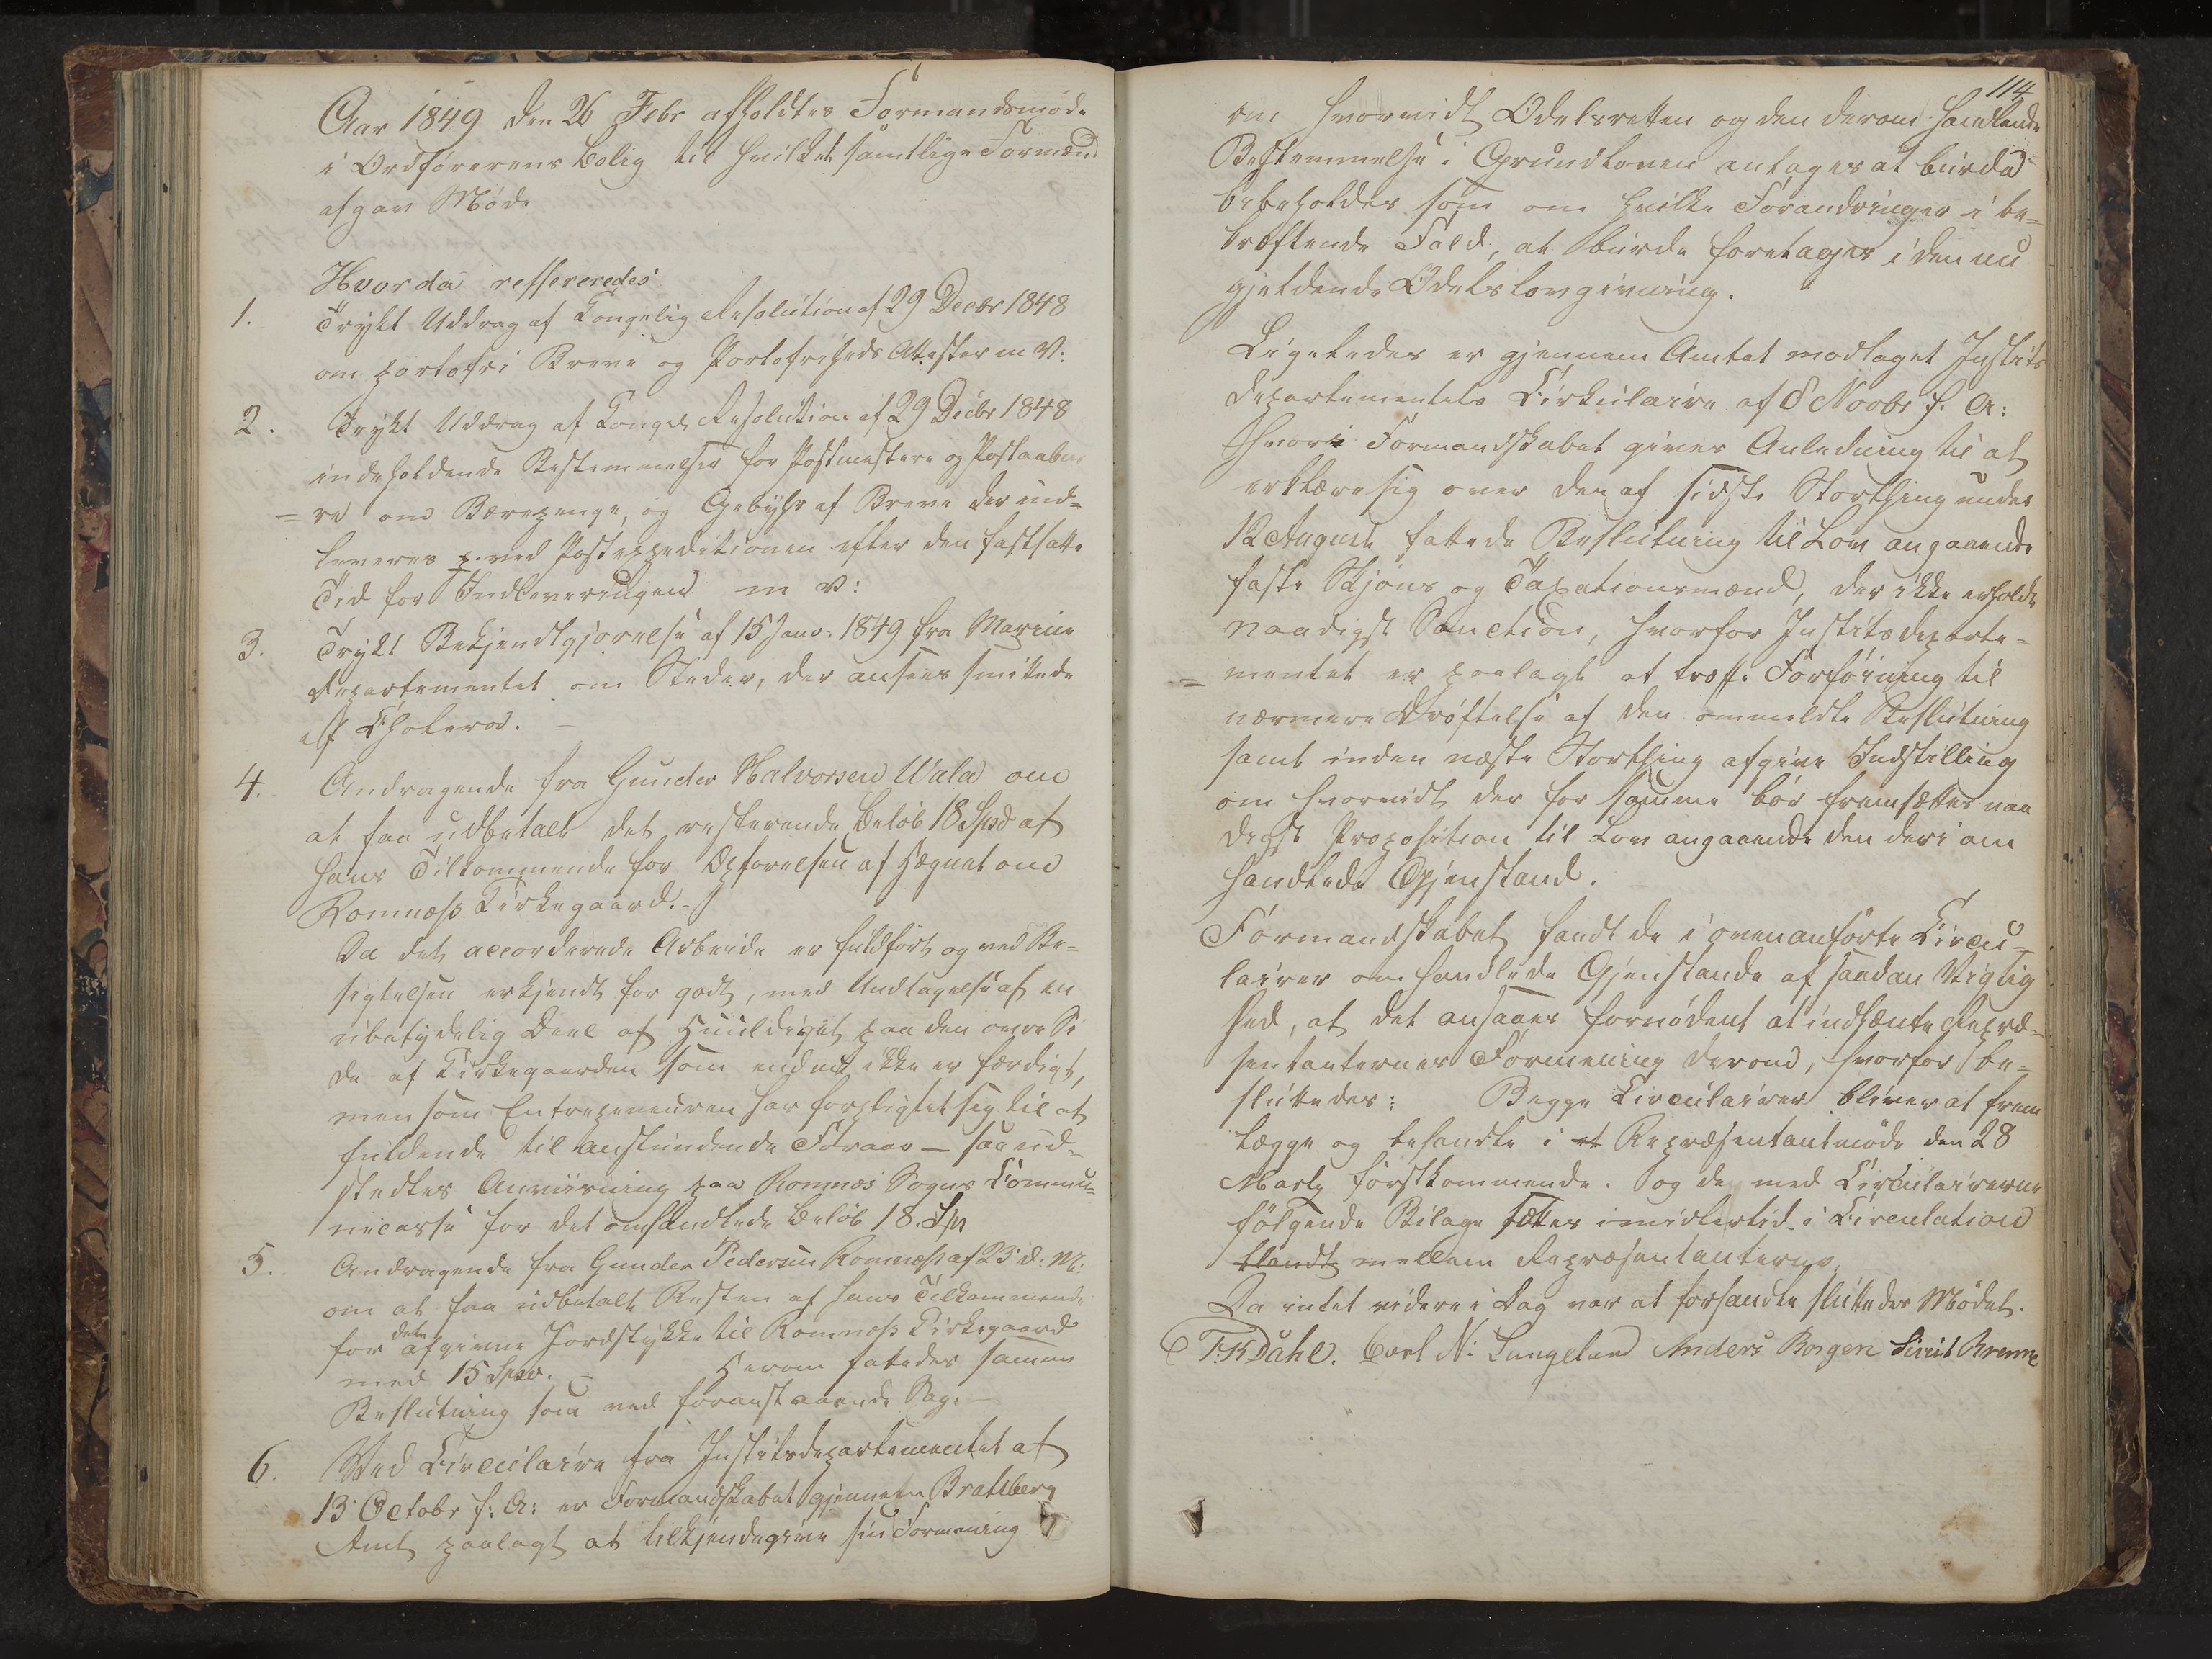 Aar 1849 den 26 Febr afholdtes Formandsmøde
i Ordførerens Bolig til hvilket samtlige Formænd
afgav Møde
Hvorda reffereredes
1. Trykt Uddrag af Kongelig Resolution af 29 Decbr 1848
om portofri Breve og Portofriheds Attester m V:
2. Trykt Uddrag af Kongel Resolution af 29 Decbr 1848
indeholdende Bestemmelser for Postmestere og Postaabne
=re om Bærepenge, og Gebyhr af Breve der ind=
leveres p. ved Postexpeditionen efter den fastsatte
Tid for Indleveringen m v:
3. Trykt Bekjendtgjørelse af 15 Janv: 1849 fra Marine
departementet om Steder, der ansees smittede
af Cholera. –
4. Andragende fra Gunder Halvorsen Wala om
at faa udbetalt det resterende Beløb 18 Spd af
hans Tilkommende for Opførelsen af Hegnet om
Romnæs Kirkegaard. –
Da det accorderede Arbeide er fuldført og ved Be=
sigtelsen erkjendt for godt, med Undtagelse af en
ubetydelig Deel af Huuldiget paa den øvre Si
de af Kirkegaarden som endnu ikke er færdigt,
men som Entrepeneuren har forpligtet sig til at
fuldende til anstundende Foraar – saa ud=
stedtes Anviisning paa Romnæs Sogns Commu=
necasse for det omhandlede Beløb 18. Spd
5. Andragende fra Gunder Pedersen Romnæs af 23 d: M:
om at faa udbetalt Resten af hans Tilkommende
for dete afgivne Jordstykke til Romnæs Kirkegaard
med 15 Spd. – Herom fattedes samme
Beslutning som ved foranstaaende Sag. –
6. Ved Circulaire fra Justitsdepartementet af
13 Octobr f: A: er Formandskabet gjennem Bratsberg
Amt paalagt at tilkjendegive sin Formening
114
om hvorvidt Odelsretten og den derom handlende
Bestemmelse i Grundloven antages at burde
bibeholdes som om hvilke Forandringer i be=
kræftende Fald, at burde foretages i den nu
gjeldende Odelslovgivning.
Ligeledes er gjennem Amtet modtaget Justits
departementets Cirkulaire af 8 Novbr f. A:
hvori Formandskabet gives Anledning til at
erklære sig over den af sidste Storthing under
12 August fattede Beslutning til Lov angaaende
faste Skjøns og Taxationsmænd, der ikke erholdt
naadigst Sanction, hvorfor Justitsdeparte=
=mentet er paalagt at træffe Forføining til
nærmere Drøftelse af den ommeldte Beslutning
samt inden næste Storthing afgive Indstilling
om hvorvidt der for samme bør fremsættes naa
digst Proposition til Lov angaaende den deri om
handlede Gjenstand.
Formandskabet fandt de i ovenanførte Circu=
lairer omhandlede Gjenstande af saadan Vigtig
hed, at det ansaaes fornødent at indhente Repræ=
sentanternes Formening derom, hvorfor be=
sluttedes: Begge Circulairer bliver at frem
lægge og behandle i et Repræsentantmøde den 28
Marts førstkommende. og de med Circulairerne
følgende Bilage sættes imidlertid i Circulation
blandt mellem Repræsentanterne.
Da intet videre i Dag var at forhandle sluttedes Mødet.
T. K Dahl. Carl N: Lungeland Anders Borgen Sivert Brenne